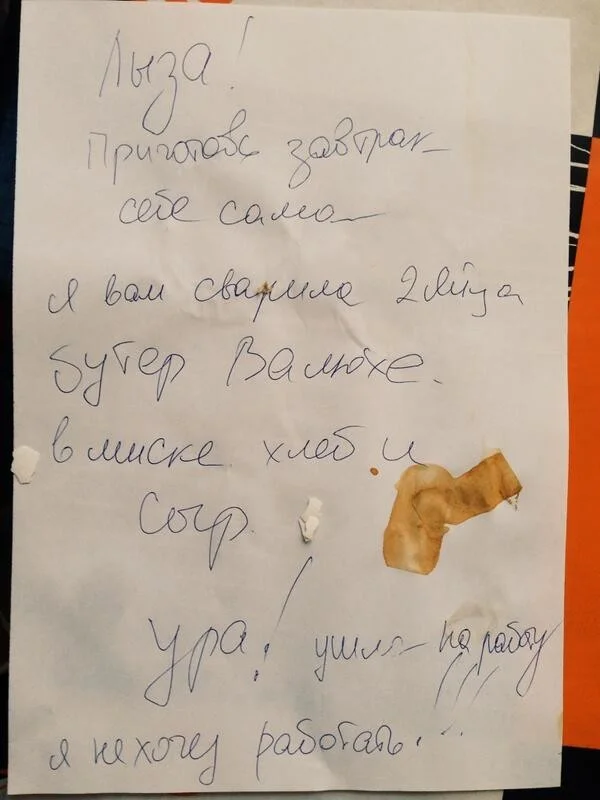 Лыза!
Приготовь завтрак
себе сама
я вам сварила 2 яйца
бутер Валюхе.
в миске хлеб и
сыр.
Ура! ушла на работу
я не хочу работать.!!!